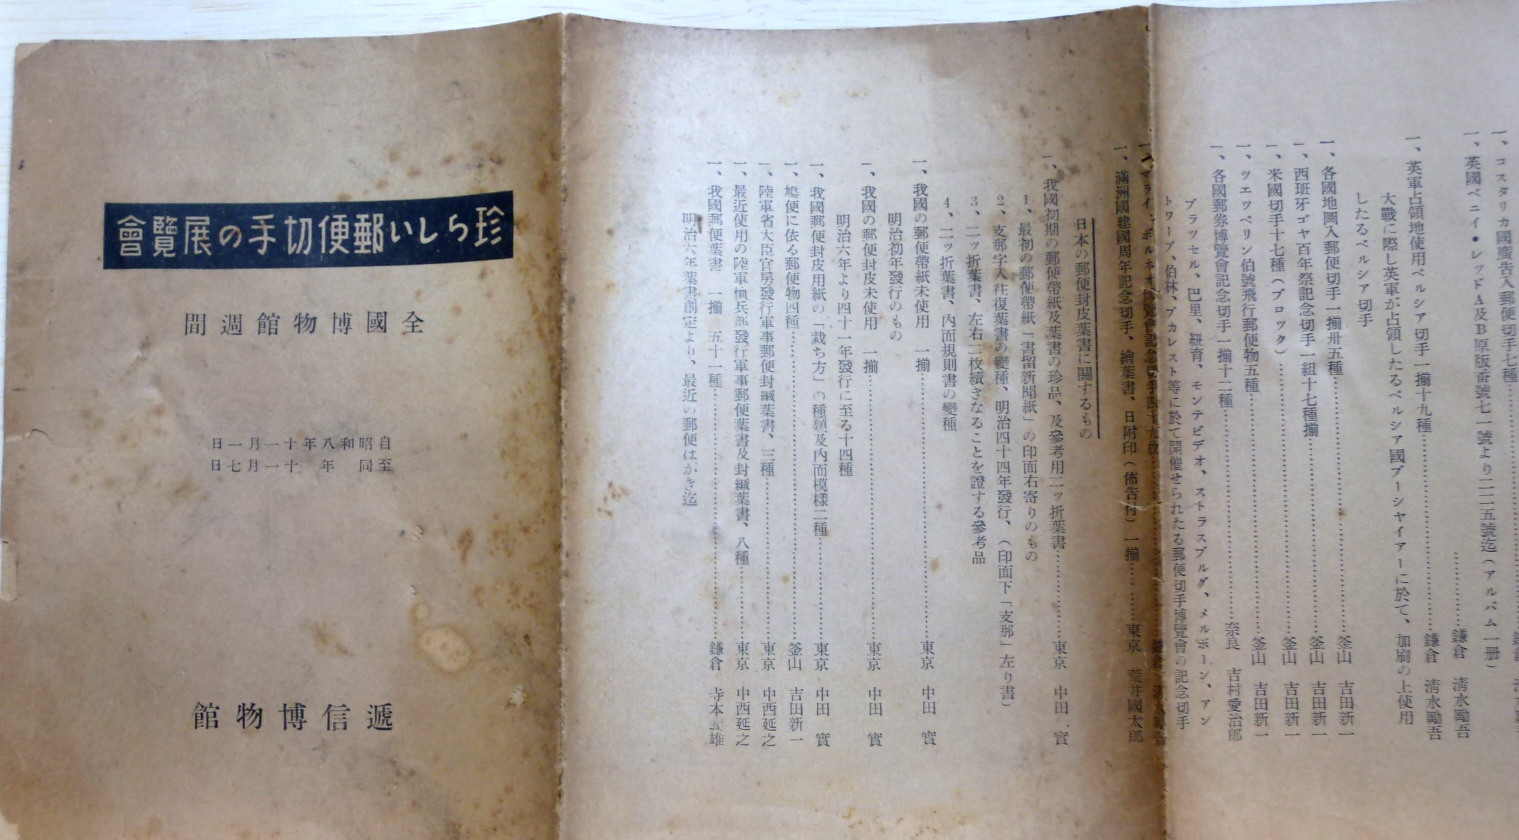 珍らしい郵便切手の展覽會
全國博物館週間
自昭和八年十一月一日
至同 年 十一月七日
遞信博物館
一、コスタリカ國廣告入郵便切手七種
一、英國ペニイ・レッドA及B原版番號七一號より二二五號迄(アルバム一册)
鎌倉 清水勵吾
一、英軍占領地使用ペルシア切手一揃十九種 鎌倉 清水勵吾
大戰に際し英軍が占領したるペルシア國ブーシヤイアーに於て、加刷の上使用
したるペルシア切手
一、各國地圖入郵便切手一揃卅五種 釜山 吉田新一
一、西班牙ゴヤ百年祭記念切手一組十七種揃 釜山 吉田新一
一、米國切手十七種(ブロック) 釜山 吉田新一
一、ツエツペリン伯號飛行郵便物五種 釜山 吉田新一
一、各國郵券博覽會記念切手一揃十二種 奈良 吉村愛治郎
ブラツセル、巴里、紐育、モンテビデオ、ストラスブルグ、メルボーン、アン
トワープ、伯林、ブカレスト等に於て開催せられたる郵便切手博覽會の記念切手
一、滿洲國建國周年記念切手、繪葉書、日附印(佈告付)一揃 東京 荒井國太郎
日本の郵便封皮葉書に關するもの
一、我國初期の郵便帶紙及葉書の珍品、及參考用二ッ折葉書 東京 中田 實
1、最初の郵便帶紙「書留新聞紙」の印面右寄りのもの
2、支郵字入往復葉書の變種、明治四十四年發行、(印面下「支郵」左り書)
3、二ッ折葉書、左右二枚續きなることを證する參考品
4、二ッ折葉書、内面規則書の變種
一、我國の郵便帶紙未使用 一揃 東京 中田 實
明治初年發行のもの
一、我國の郵便封皮未使用 一揃 東京 中田 實
明治六年より四十一年發行に至る十四種
一、我國郵便封皮用紙の「裁ち方」の種類及内面模樣二種 東京 中田 實
一、鳩便に依る郵便物四種 釜山 吉田新一
一、陸軍省大臣官房發行軍事郵便封緘葉書、三種 東京 中西延之
一、最近使用の陸軍恤兵部發行軍事郵便葉書及封緘葉書、八種 東京 中西延之
一、我國郵便葉書 一揃 五十一種 鎌倉 寺本 雄
明治六年葉書創定より、最近の郵便はがき迄